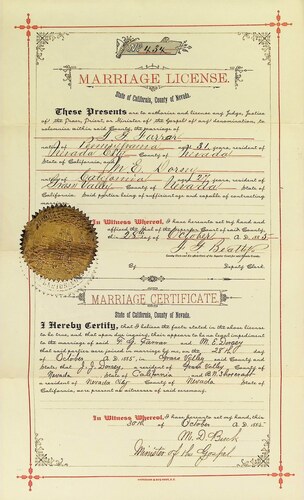 No 454
MARRIAGE LICENSE.
State of California, County of Nevada.
These Presents are to authorize and license any Judge, Justice
of the Peace, Priest, or Minister of the Gospel of any denomination, to
solemnize within said County, the marriage of
F. G. Farrar
native of Pennsylvania aged 31 years, resident of
Nevada City County of Nevada
State of California, and
M E Dorsey
native of California aged 27 years, resident of
Grass Valley County of Nevada
State of California. Said parties being of sufficient age and capable of contracting
In Witness Whereof, I have hereunto set my hand and
affixed the Seal of the Superior Court of said County,
this 28th day of October A. D. 1885
By Deputy Clerk.
MARRIAGE CERTIFICATE.
State of California, County of Nevada.
I Hereby Certify, that I believe the facts stated in the above license
to be true, and that upon due inquiry, there appears to be no legal impediment
to the marriage of said F. G. Farrar and M. E. Dorsey
that said parties were joined in marriage by me, on the 28th day
of October A. D. 1885, in Grass Valley County and
State; that J. J. Dorsey, resident of Grass Valley County of
Nevada State of California and
a resident of Nevada City County of Nevada State of
California, as present as witnesses of said ceremony.
In Witness Whereof, I have hereunto set my hand, this
30th of October A. D. 1885
Minister of the Gospel